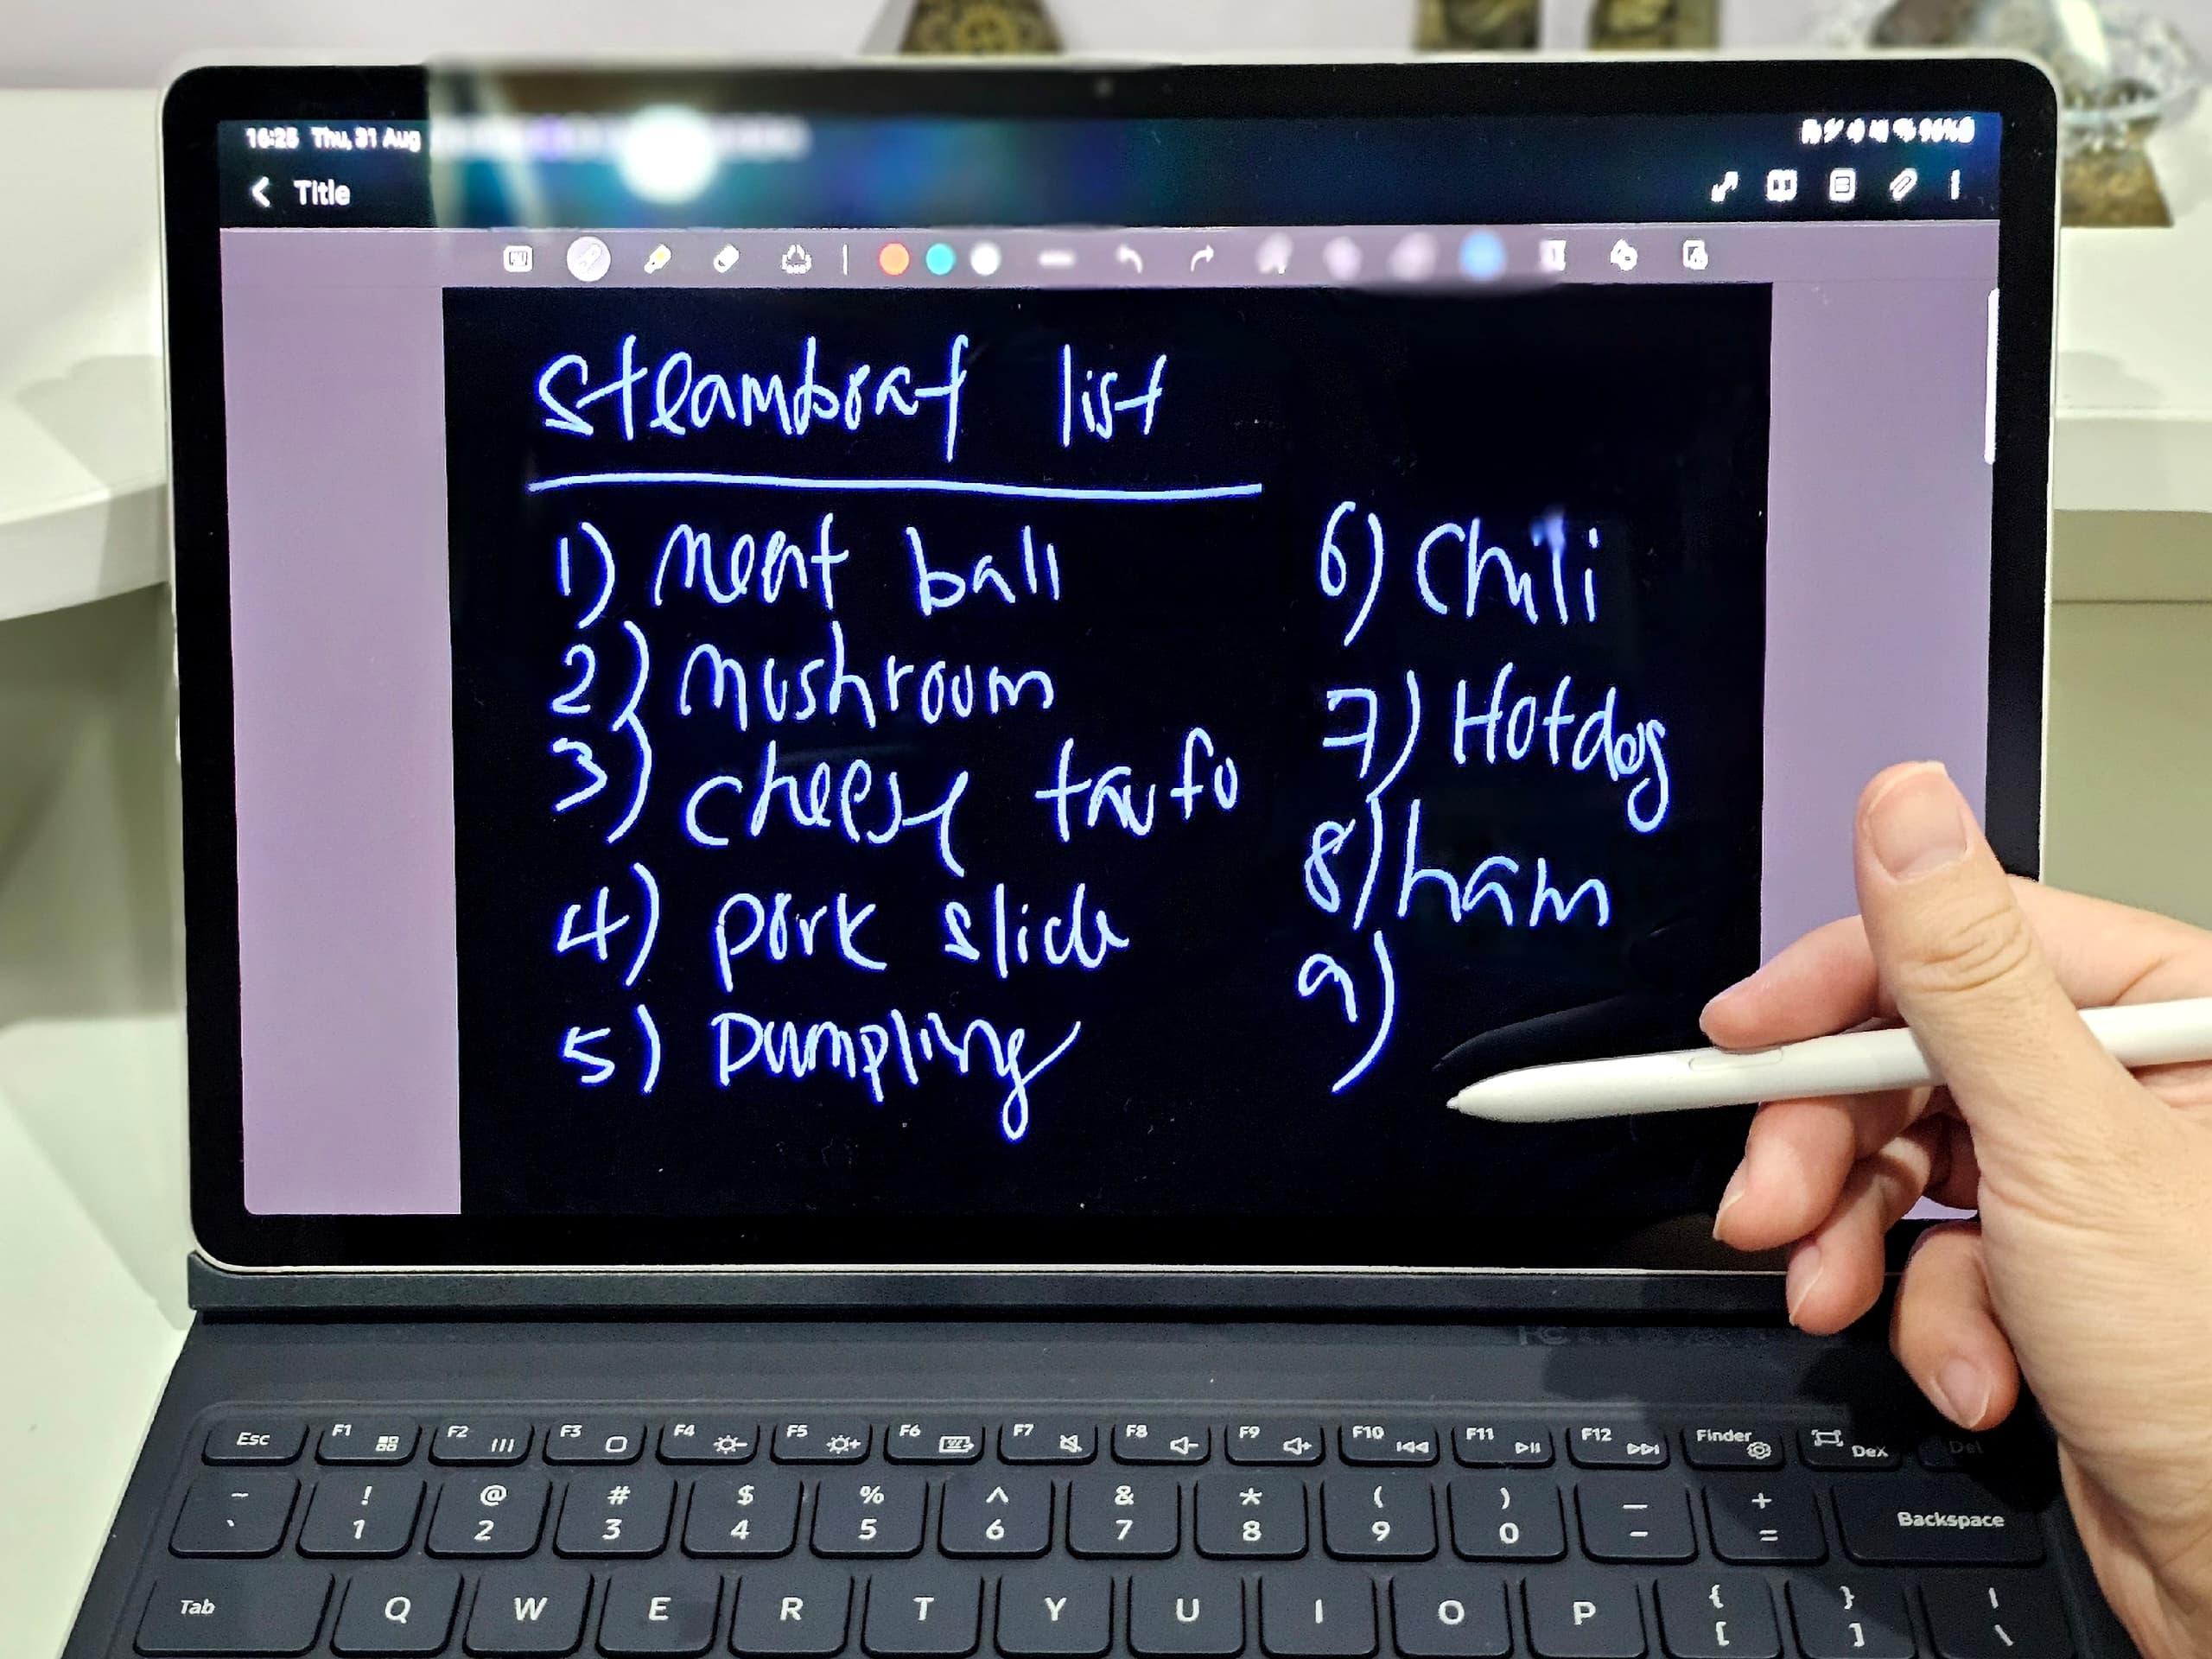 16:25 Thu, 31 Aug
96%
Title
Steamboat list
1) Meat ball
2) Mushroom
3) Cheese taufu
4) Pork slice
5) Dumpling
6) Chili
7) Hotdog
8) ham
9)
Esc F1 F2 F3 F4 F5 F6 F7 F8 F9 F10 F11 F12 Finder DeX Del
~ ! @ # $ % ^ & * ( ) _ +
` 1 2 3 4 5 6 7 8 9 0 - = Backspace
Tab Q W E R T Y U I O P { [ } ] | \